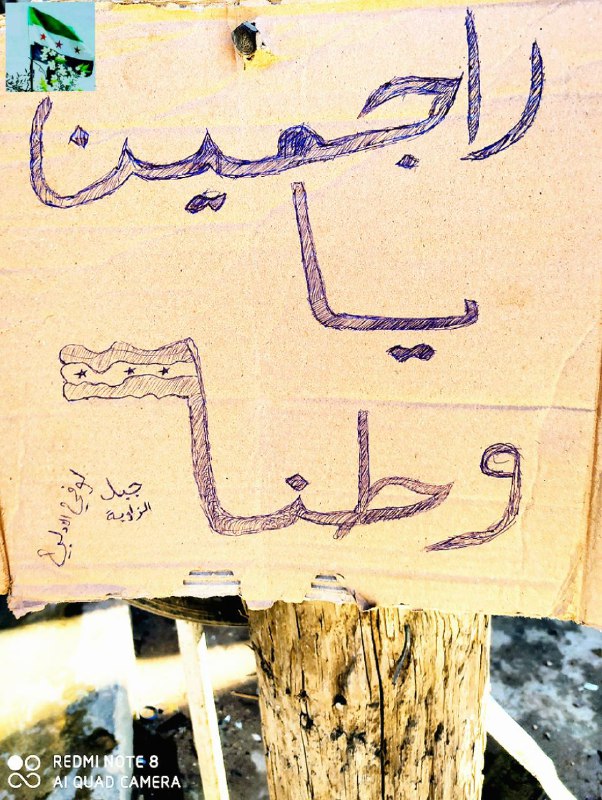 راجعين
يا
وطنا
جبل
الزاوية
الادلبي
REDMI NOTE 8
AI QUAD CAMERA